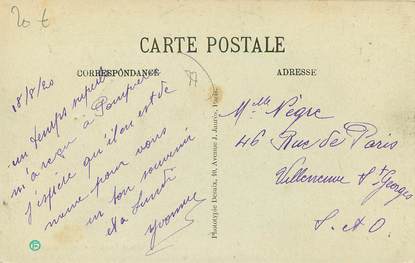 20 t
CARTE POSTALE
CORRESPONDANCE
ADRESSE
77
18/8/20
un temps superbe
m'a reçu à
j'espère qu'il en est de
même pour vous
un bon souvenir
et à lundi
Yvonne
Phototype Desaix, 10, Avenue J. Jaurès, Paris.
Melle Nègre
46 Rue de Paris
Villeneuve St Georges
S. et O.